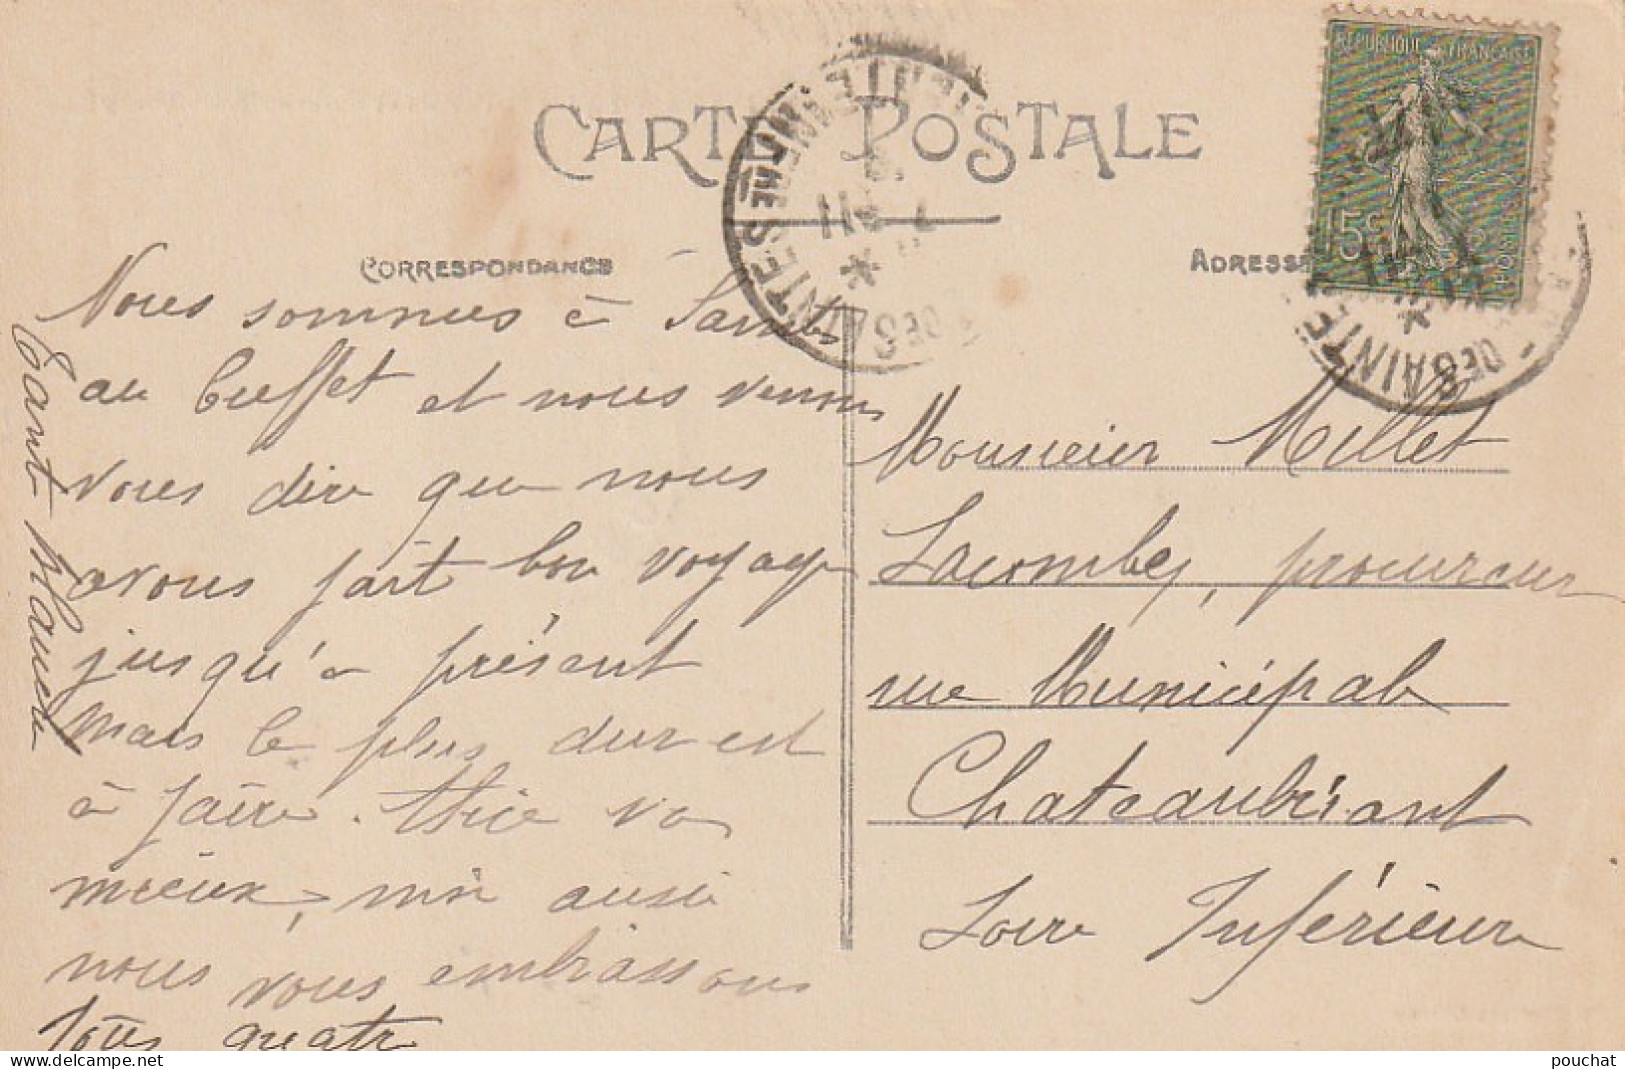 CARTE POSTALE
CORRESPONDANCE
Nous sommes à Saintes
au buffet et nous venons
vous dire que nous
avons fait bon voyage
jusqu'à présent
mais le plus dur est
à faire. Alice va
mieux, moi aussi
nous vous embrassons
tous quatre
Tante Blanche
ADRESSE
RÉPUBLIQUE FRANÇAISE
15c
POSTES
DE SAINTES
Monsieur Millet
Lacombe, procureur
rue Municipale
Chateaubriant
Loire Inférieure
pouchat